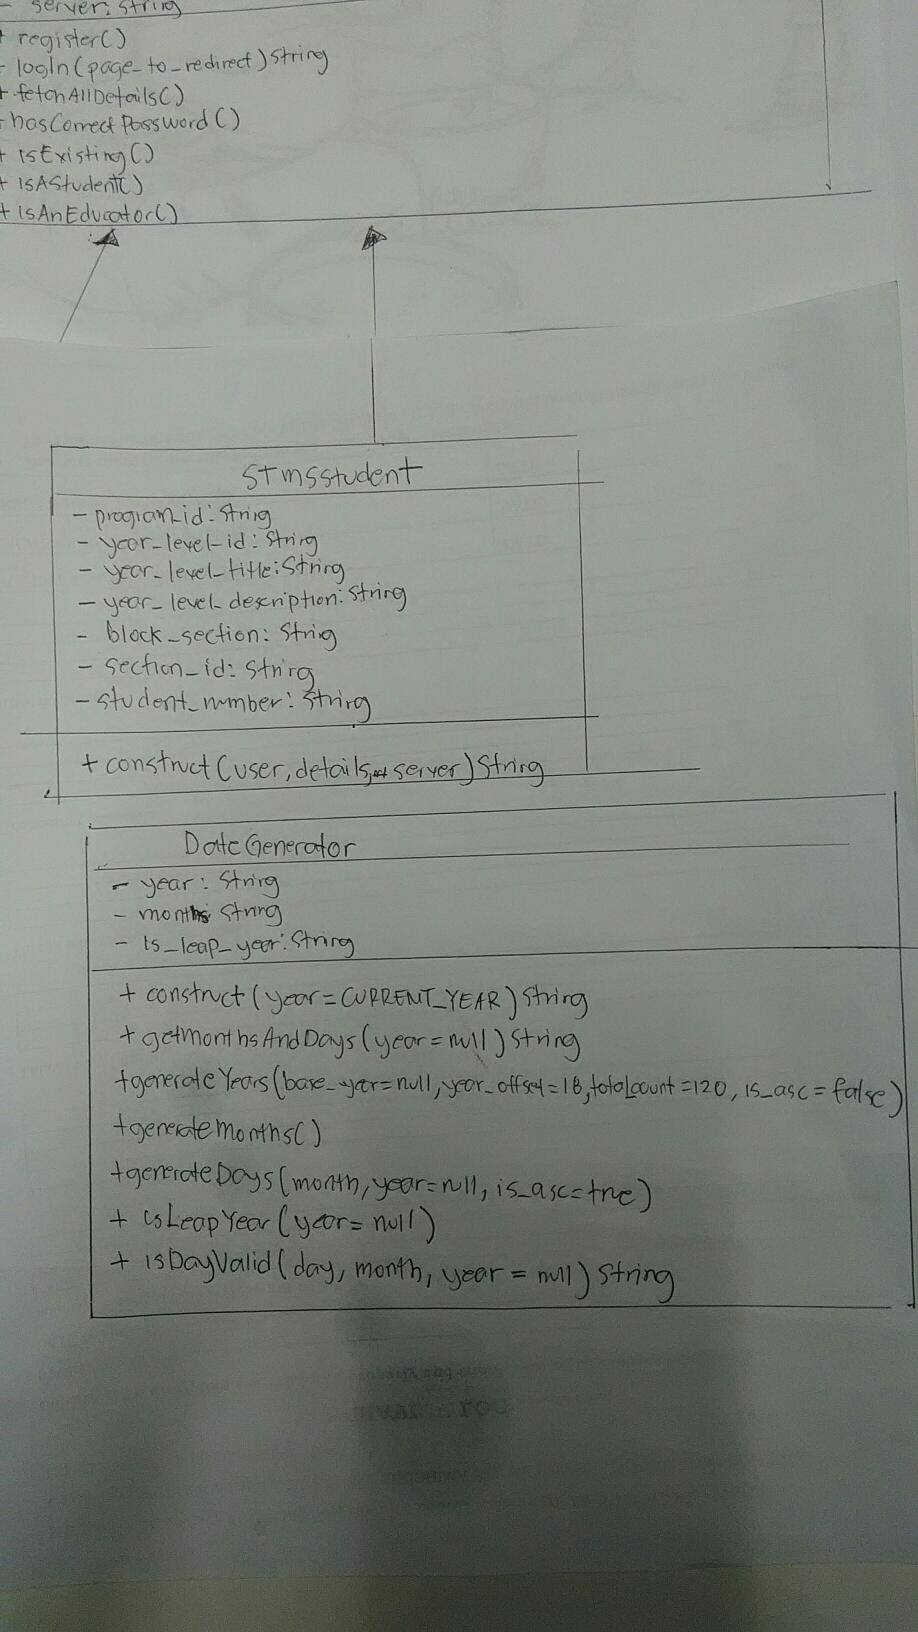 - server: String
+ register()
- logIn(page_to_redirect) String
+ fetchAllDetails()
- hasCorrectPassword()
+ isExisting()
+ isAStudent()
+ isAnEducator()
STMSStudent
- program_id: String
- year_level_id: String
- year_level_title: String
- year_level_description: String
- block_section: String
- section_id: String
- student_number: String
+ construct(user, details, server) String
DateGenerator
- year: String
- months: String
- is_leap_year: String
+ construct(year = CURRENT_YEAR) String
+ getMonthsAndDays(year = null) String
+generateYears(base_year=null, year_offset=18, total_count=120, is_asc = false)
+generateMonths()
+generateDays(month, year=null, is_asc=true)
+ isLeapYear(year= null)
+ isDayValid(day, month, year = null) String